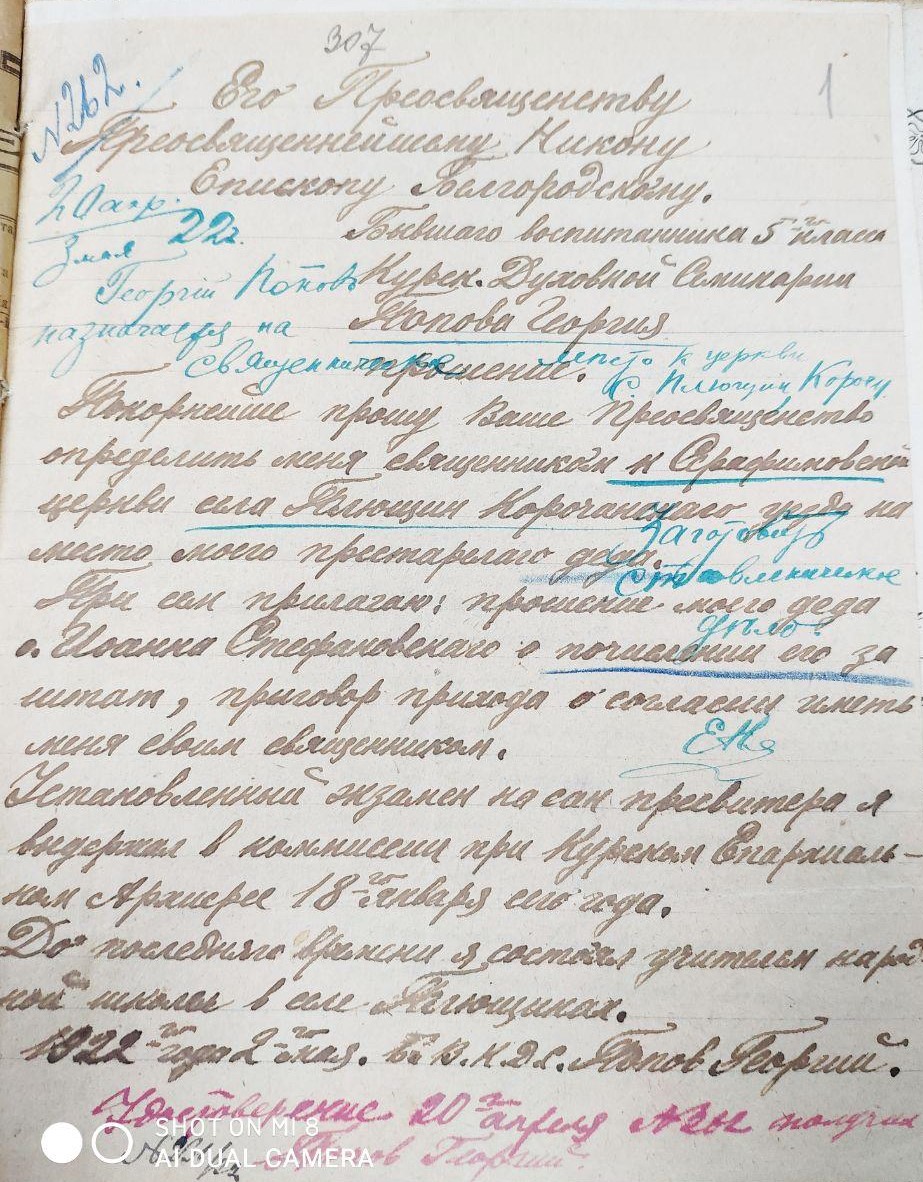 307
1
№262.
Его Преосвященству
Преосвященнейшему Никону
Епископу Белгородскому.
20 апр.
3 мая 22г.
Бывшего воспитанника 5го класса
Курск. Духовной Семинарии
Попова Георгия
Георгій Поповъ
назначается на
священническое место к церкви
с. Плющин Короч.
прошение.
Покорнейше прошу Ваше Преосвященство
определить меня священником к Серафимовской
церкви села Плющин Корочанскаго уезда на
место моего престарелаго деда.
Заготовить
ставленническое
дѣло.
При сем прилагаю: прошение моего деда
о. Иоанна Стефановскаго о почислении его за
штат, приговор прихода о согласии иметь
меня своим священником.
ЕНъ
Установленный экзамен на сан пресвитера я
выдержал в комиссии при Курском Епархиаль-
ном Архиерее 18го января сего года.
До последняго времени я состоял учителем народ
ной школы в селе Плющинах.
1922го года 2го мая. Б. в. К. д. с. Попов Георгий.
Удостоверение 20го апреля № получил
Попов Георгий.
SHOT ON MI 8
AI DUAL CAMERA